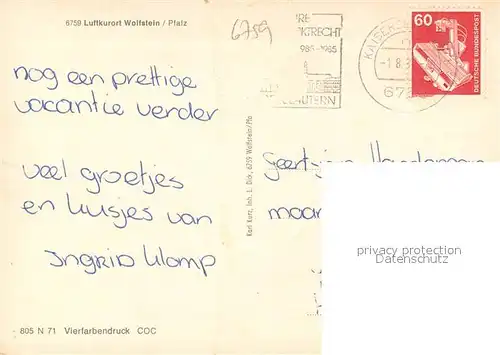 6759 Luftkurort Wolfstein / Pfalz
6759
60
DEUTSCHE BUNDESPOST
nog een prettige
vacantie verder
veel groetjes
en kusjes van
Ingrid Klomp
Karl Kunz, Inh. L. Dick, 6759 Wolfstein/Pfa
Geert-jan
maar
privacy protection
Datenschutz
805 N 71 Vierfarbendruck COC